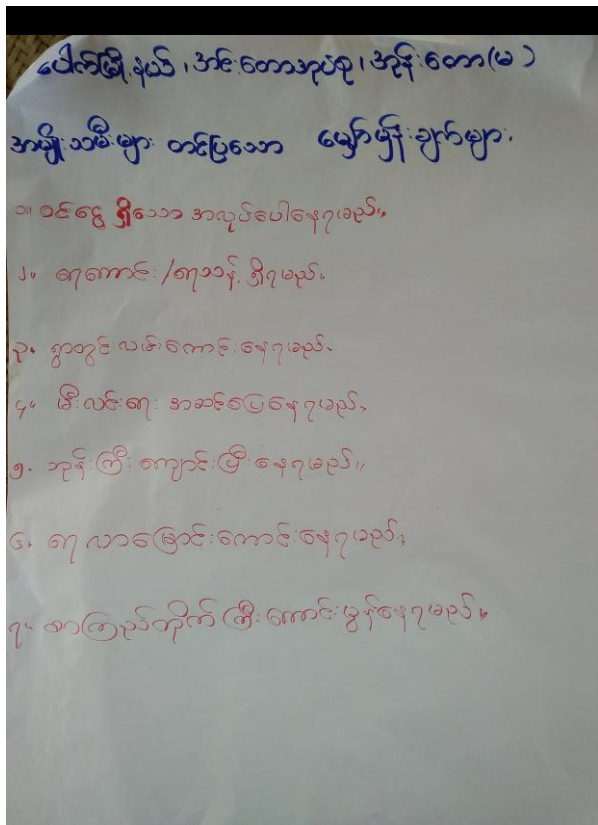 ပေါက်မြို့နယ်၊ အင်းတောအုပ်စု၊ အုန်းတော(မ)
အမျိုးသမီးများ တင်ပြသော မျှော်မှန်းချက်များ.
၁။ ဝင်ငွေ ရှိသော အလုပ်ပေါနေရမည်။
၂။ ရေကောင်း/ရေသန့် ရှိရမည်။
၃။ ရွာတွင်းလမ်းကောင်းနေရမည်.
၄။ မီးလင်းရေး အဆင်ပြေနေရမည်။
၅. ဘုန်းကြီးကျောင်းပြီးနေရမည်။
၆. ရေလာမြောင်းကောင်းနေရမည်။
၇။ စာကြည့်တိုက်ကြီးကောင်းမွန်နေရမည်။